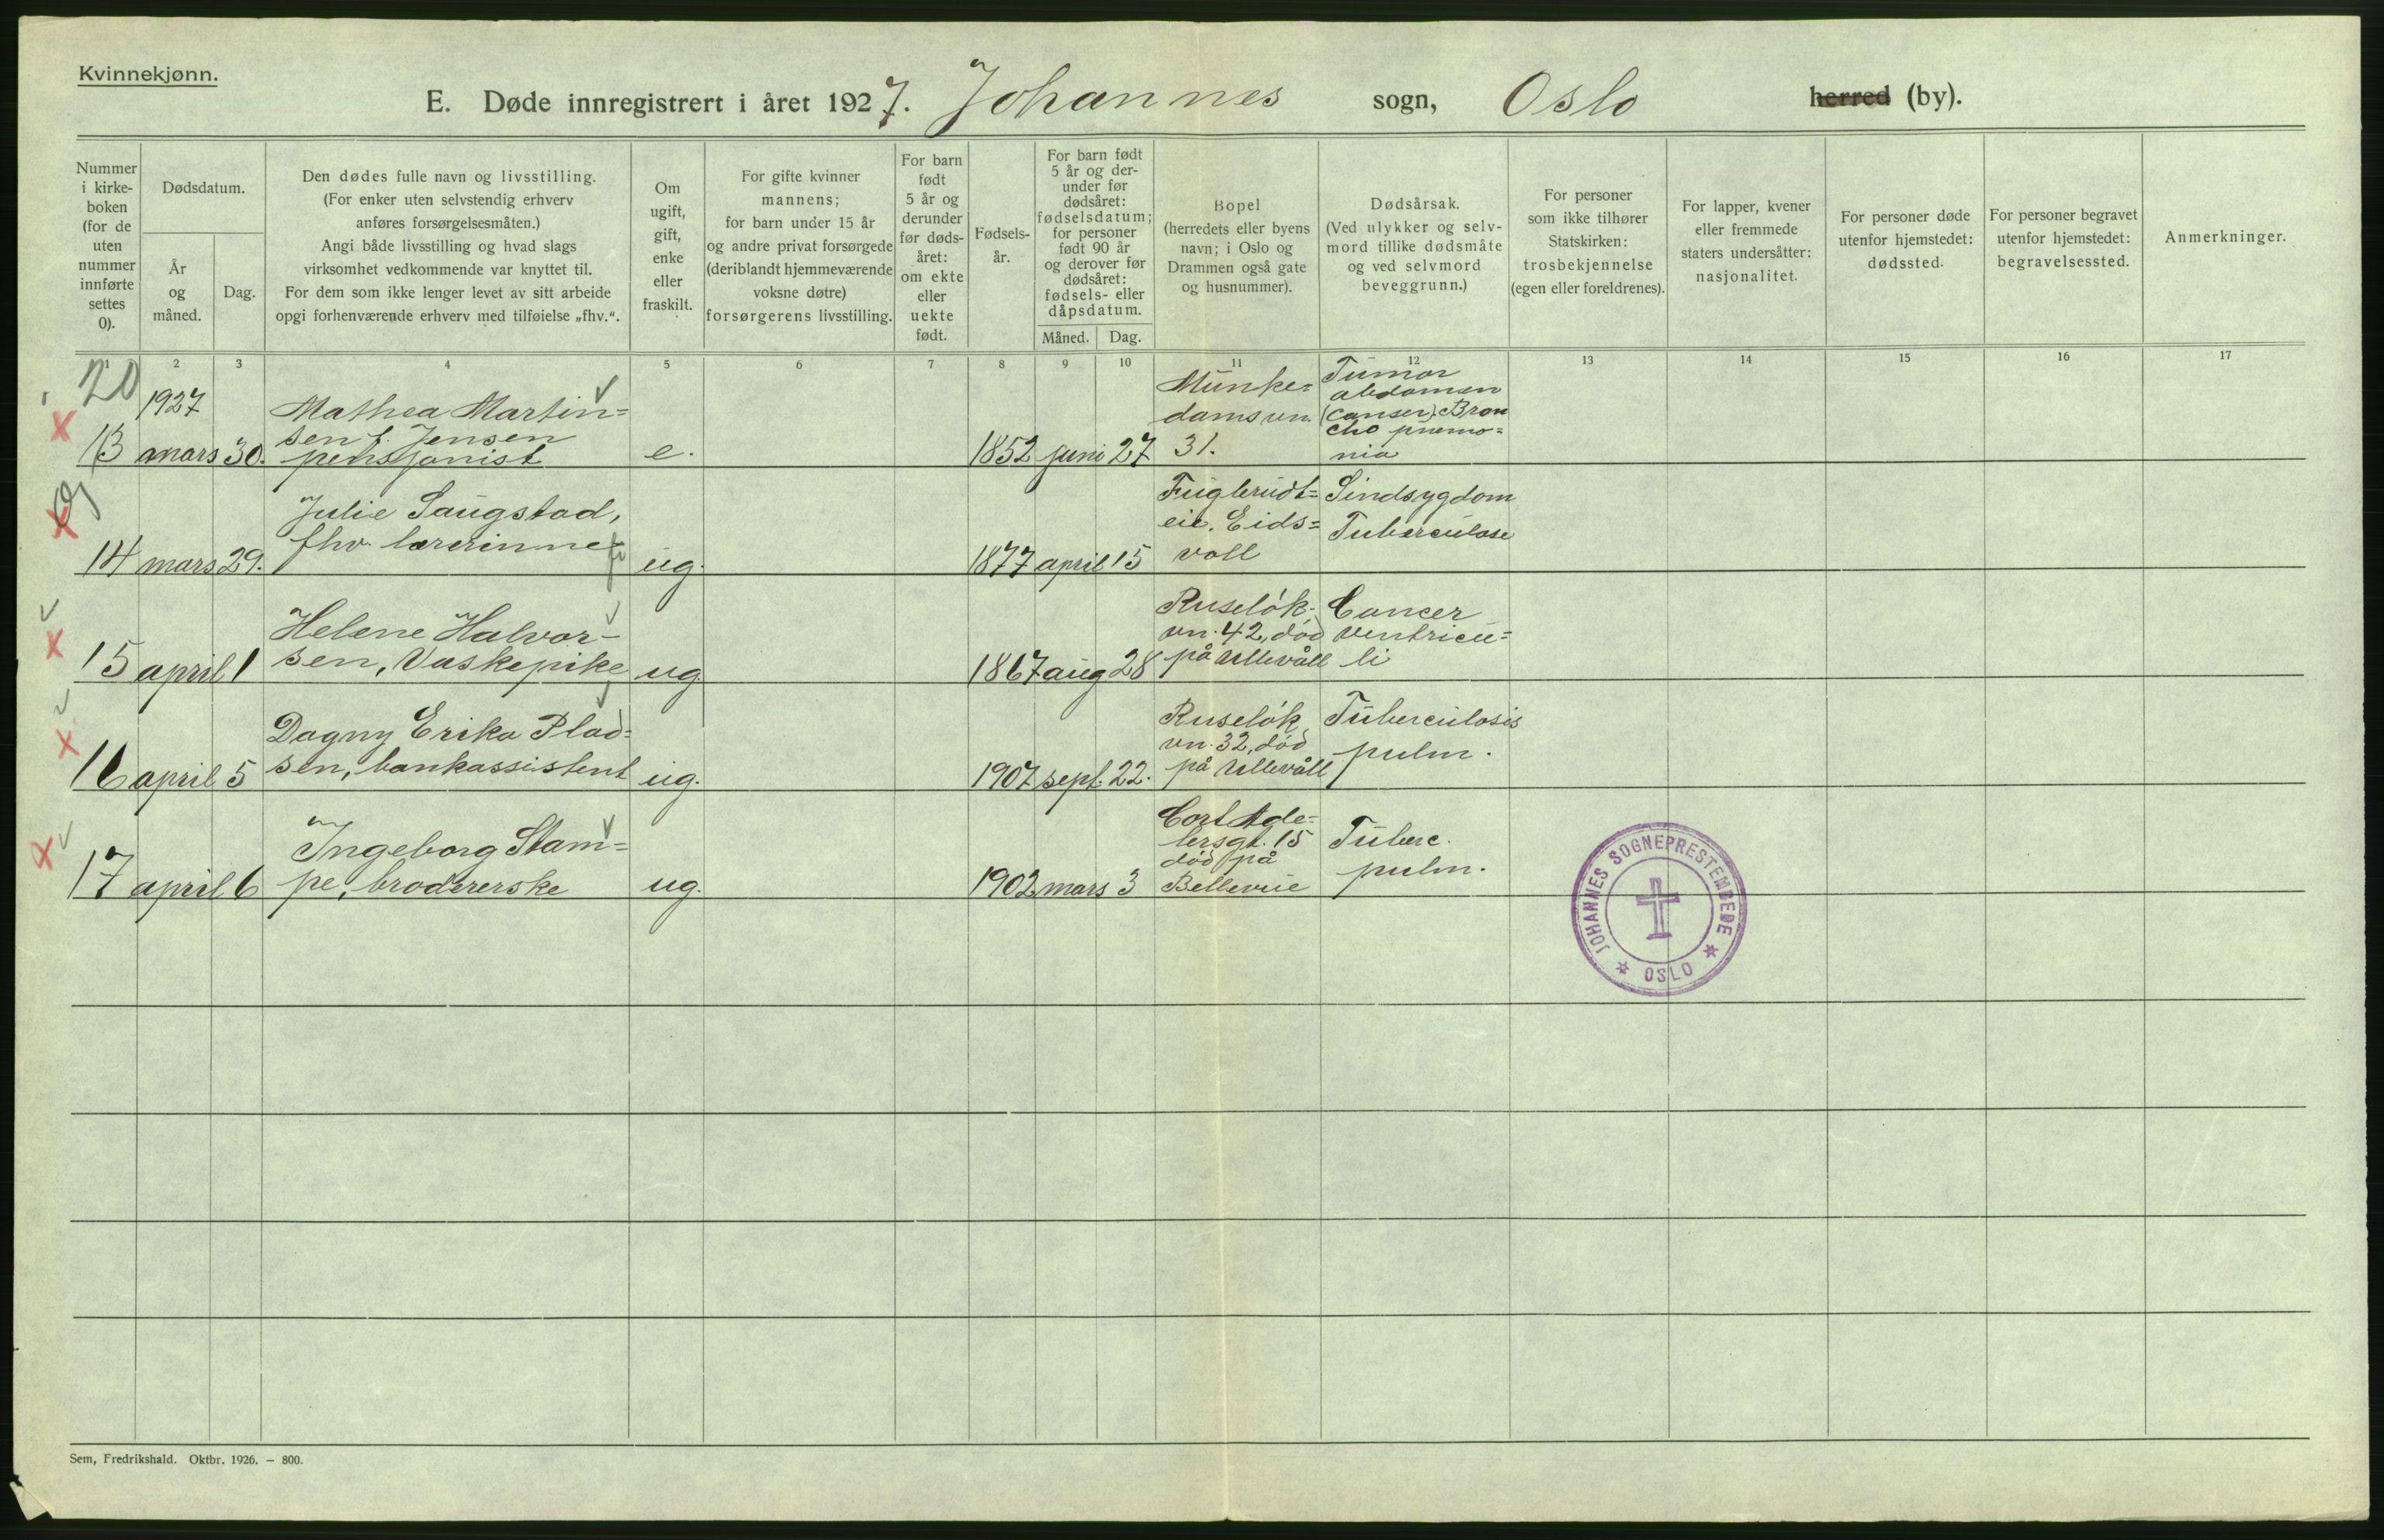 Kvinnekjønn.
E. Døde innregistrert i året 1927. Johannes sogn, Oslo herred (by).
Nummer
i kirke-
boken
(for de
uten
nummer
innførte
settes
0).
Dødsdatum.
År
og
måned.
Dag.
Den dødes fulle navn og livsstilling.
(For enker uten selvstendig erhverv
anføres forsørgelsesmåten.)
Angi både livsstilling og hvad slags
virksomhet vedkommende var knyttet til.
For dem som ikke lenger levet av sitt arbeide
opgi forhenværende erhverv med tilføielse „fhv.“.
Om
ugift,
gift,
enke
eller
fraskilt.
For gifte kvinner
mannens;
for barn under 15 år
og andre privat forsørgede
(deriblandt hjemmeværende
voksne døtre)
forsørgerens livsstilling.
For barn
født
5 år og
derunder
før døds-
året:
om ekte
eller
uekte
født.
Fødsels-
år.
For barn født
5 år og der-
under før
dødsåret:
fødselsdatum;
for personer
født 90 år
og derover før
dødsåret:
fødsels- eller
dåpsdatum.
Måned. Dag.
Bopel
(herredets eller byens
navn; i Oslo og
Drammen også gate
og husnummer).
Dødsårsak.
(Ved ulykker og selv-
mord tillike dødsmåte
og ved selvmord
beveggrunn.)
For personer
som ikke tilhører
Statskirken:
trosbekjennelse
(egen eller foreldrenes).
For lapper, kvener
eller fremmede
staters undersåtter:
nasjonalitet.
For personer døde
utenfor hjemstedet:
dødssted.
For personer begravet
utenfor hjemstedet:
begravelsessted.
Anmerkninger.
1 2 3 4 5 6 7 8 9 10 11 12 13 14 15 16 17
20
1927
13 mars 30.
Mathea Martin=
sen f. Jensen
pensjonist
e.
1852 juni 27
Munke=
damsvn.
31.
Tumor
abdomen
(canser). Bron
cho pnemo=
nia
14 mars 29.
Julie Saugstad,
fhv. lærerinne
ug.
1877 april 15
Fuglerudt=
eie. Eids=
voll
Sindsygdom
Tuberculose
15 april 1
Helene Halvor-
sen, Vaskepike
ug.
1867 aug 28
Ruseløk-
vn. 42, død
på Ullevåll
Cancer
ventricu=
li
16 april 5
Dagny Erika Plad=
sen, bankassistent
ug.
1907 sept. 22.
Ruseløk
vn. 32, død
på Ullevåll
Tuberculosis
pulm.
17 april 6
Ingeborg Stam=
pe, brodererske
ug.
1902 mars 3
Cort Ade=
lersgt. 15
død på
Bellevue
Tuberc.
pulm.
JOHANNES SOGNEPRESTEMBEDE
OSLO
Sem, Fredrikshald. Oktbr. 1926. – 800.